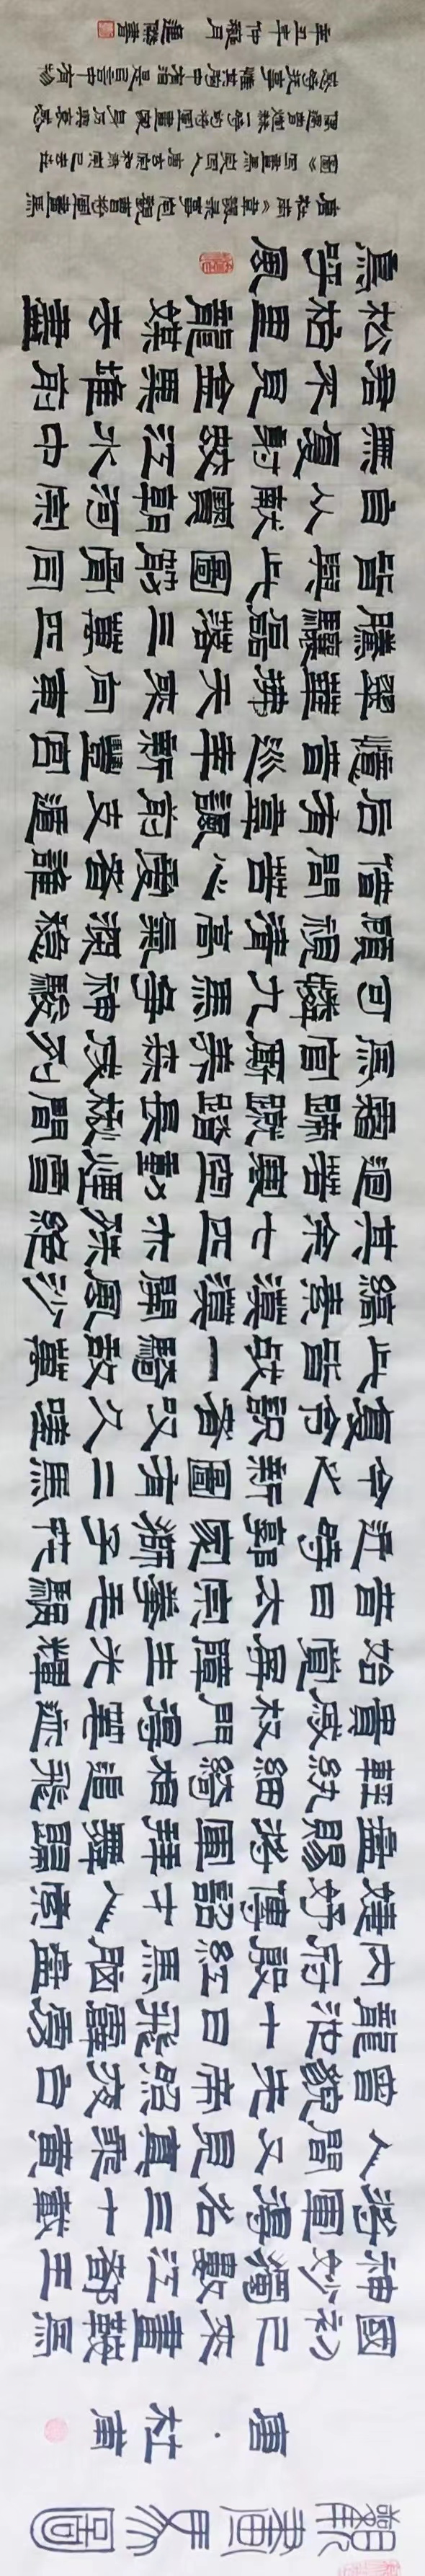 觀畫馬圖
唐·杜甫
國初已來畫鞍馬
神妙獨數江都王
將軍得名三十載
人間又見真乘黃
曾貌先帝照夜白
龍池十日飛霹靂
內府殷紅馬腦盤
婕妤傳詔才人索
盤賜將軍拜舞歸
輕紈細綺相追飛
貴戚权門得筆跡
始覺屏障生光輝
昔日太宗拳毛騧
近時郭家獅子花
今之新圖有二馬
復令識者久歎嗟
此皆戰一騎敵萬
縞素漠漠開風沙
其餘七匹亦殊絕
迥若寒空動煙雪
霜蹄蹴踏長楸間
馬官廝養森成列
可憐九馬爭神駿
顧視清高氣深穩
借問苦心愛者誰
后有韋諷前支遁
憶昔巡幸新豐宮
翠華拂天來向東
騰驤磊落三萬匹
皆與此圖筋骨同
自從獻寶朝河宗
無復射蛟江水中
君不見金粟堆前
松柏里龍媒去盡
鳥呼風
唐杜甫《韋諷录事宅觀曹將軍畫馬
圖》写畫馬
言中有物
辛丑年仲龝月